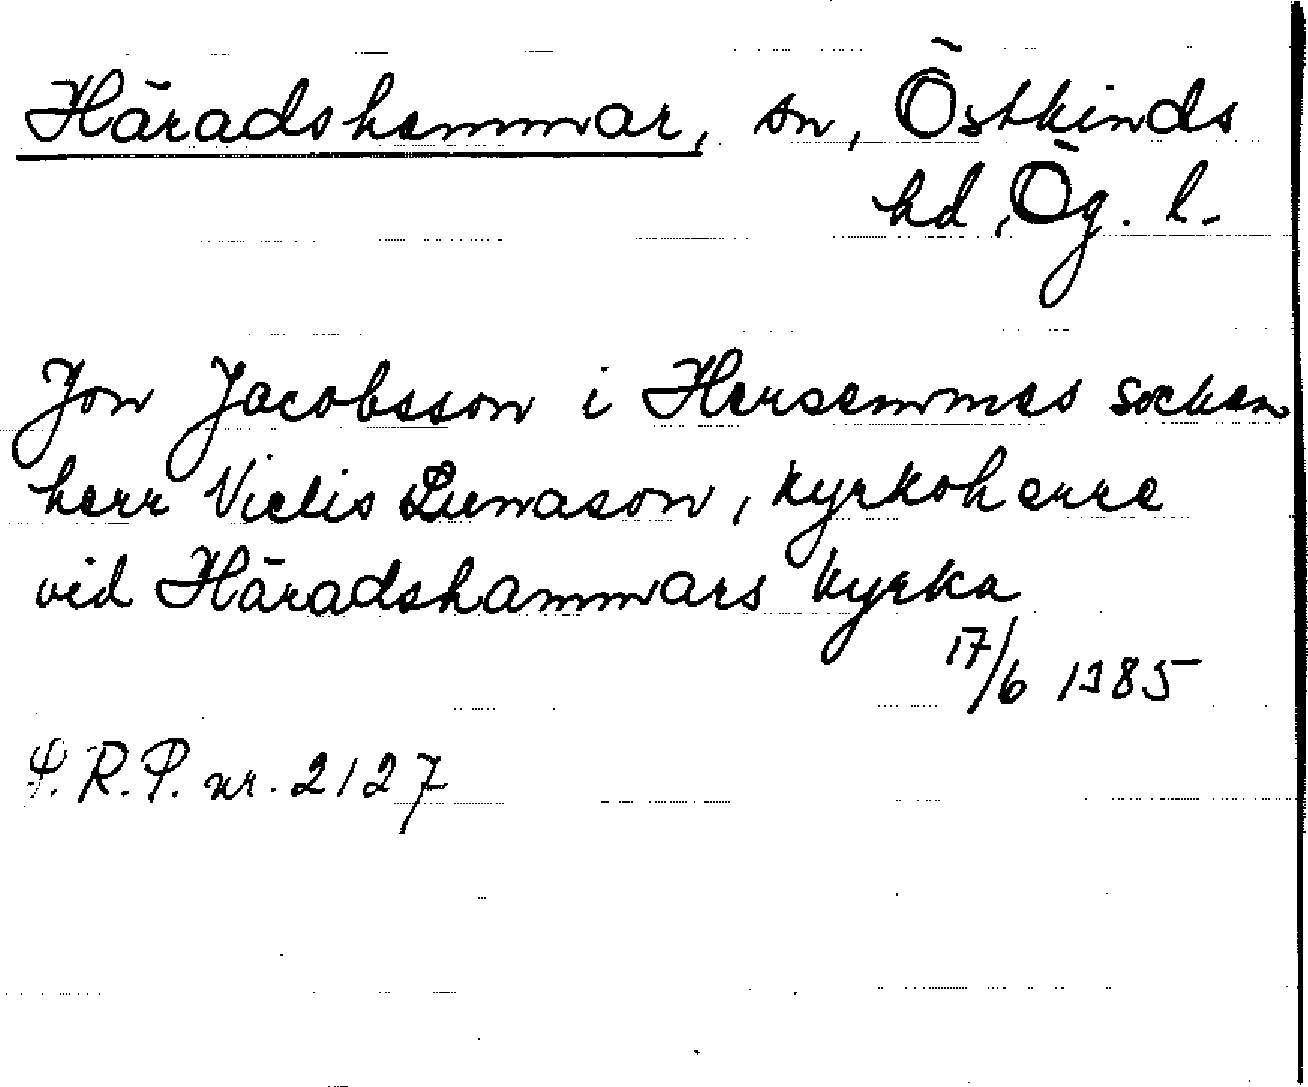 Häradshammar, sn, Östkinds
hd, Ög. l.
Jon Jacobsson i Hersemmes socken
herr Viclis Lunason, kyrkoherre
vid Häradshammars kyrka
17/6 1385
S.R.P. nr. 2127